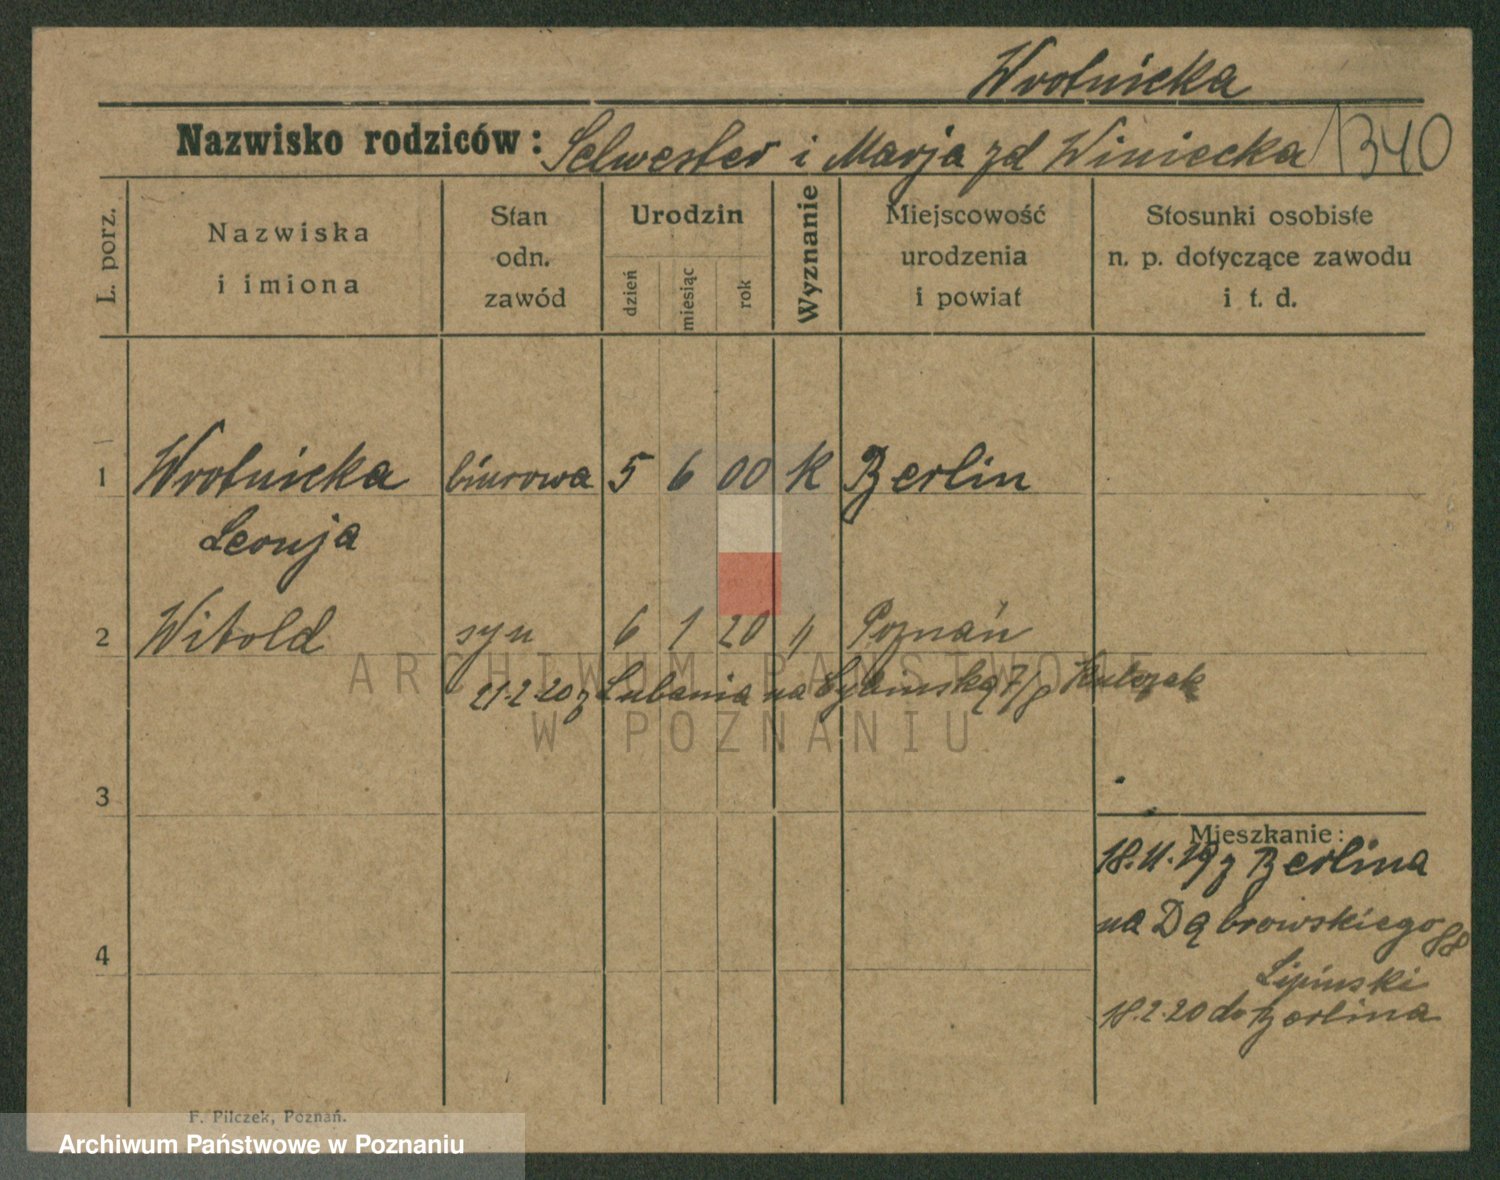 Wrotnicka
Nazwisko rodziców: Selwester i Marja zd Winiecka 1340
L. porz.
Nazwiska
i imiona
Stan
odn.
zawód
Urodzin
dzień
miesiąc
rok
Wyznanie
Miejscowość
urodzenia
i powiat
Stosunki osobiste
n. p. dotyczące zawodu
i t. d.
1 Wrotnicka biurowa 5 6 00 K Berlin
Leonja
2 Witold syn 6 1 20 " Poznań
21.2.20 z Lubania na 7/8
3
Mieszkanie:
18.11.19 z Berlina
na Dąbrowskiego 88
4
Lipinski
18.2.20 do Berlina
F. Pilczek, Poznań.
ARCHIWUM PAŃSTWOWE
W POZNANIU
Archiwum Państwowe w Poznaniu